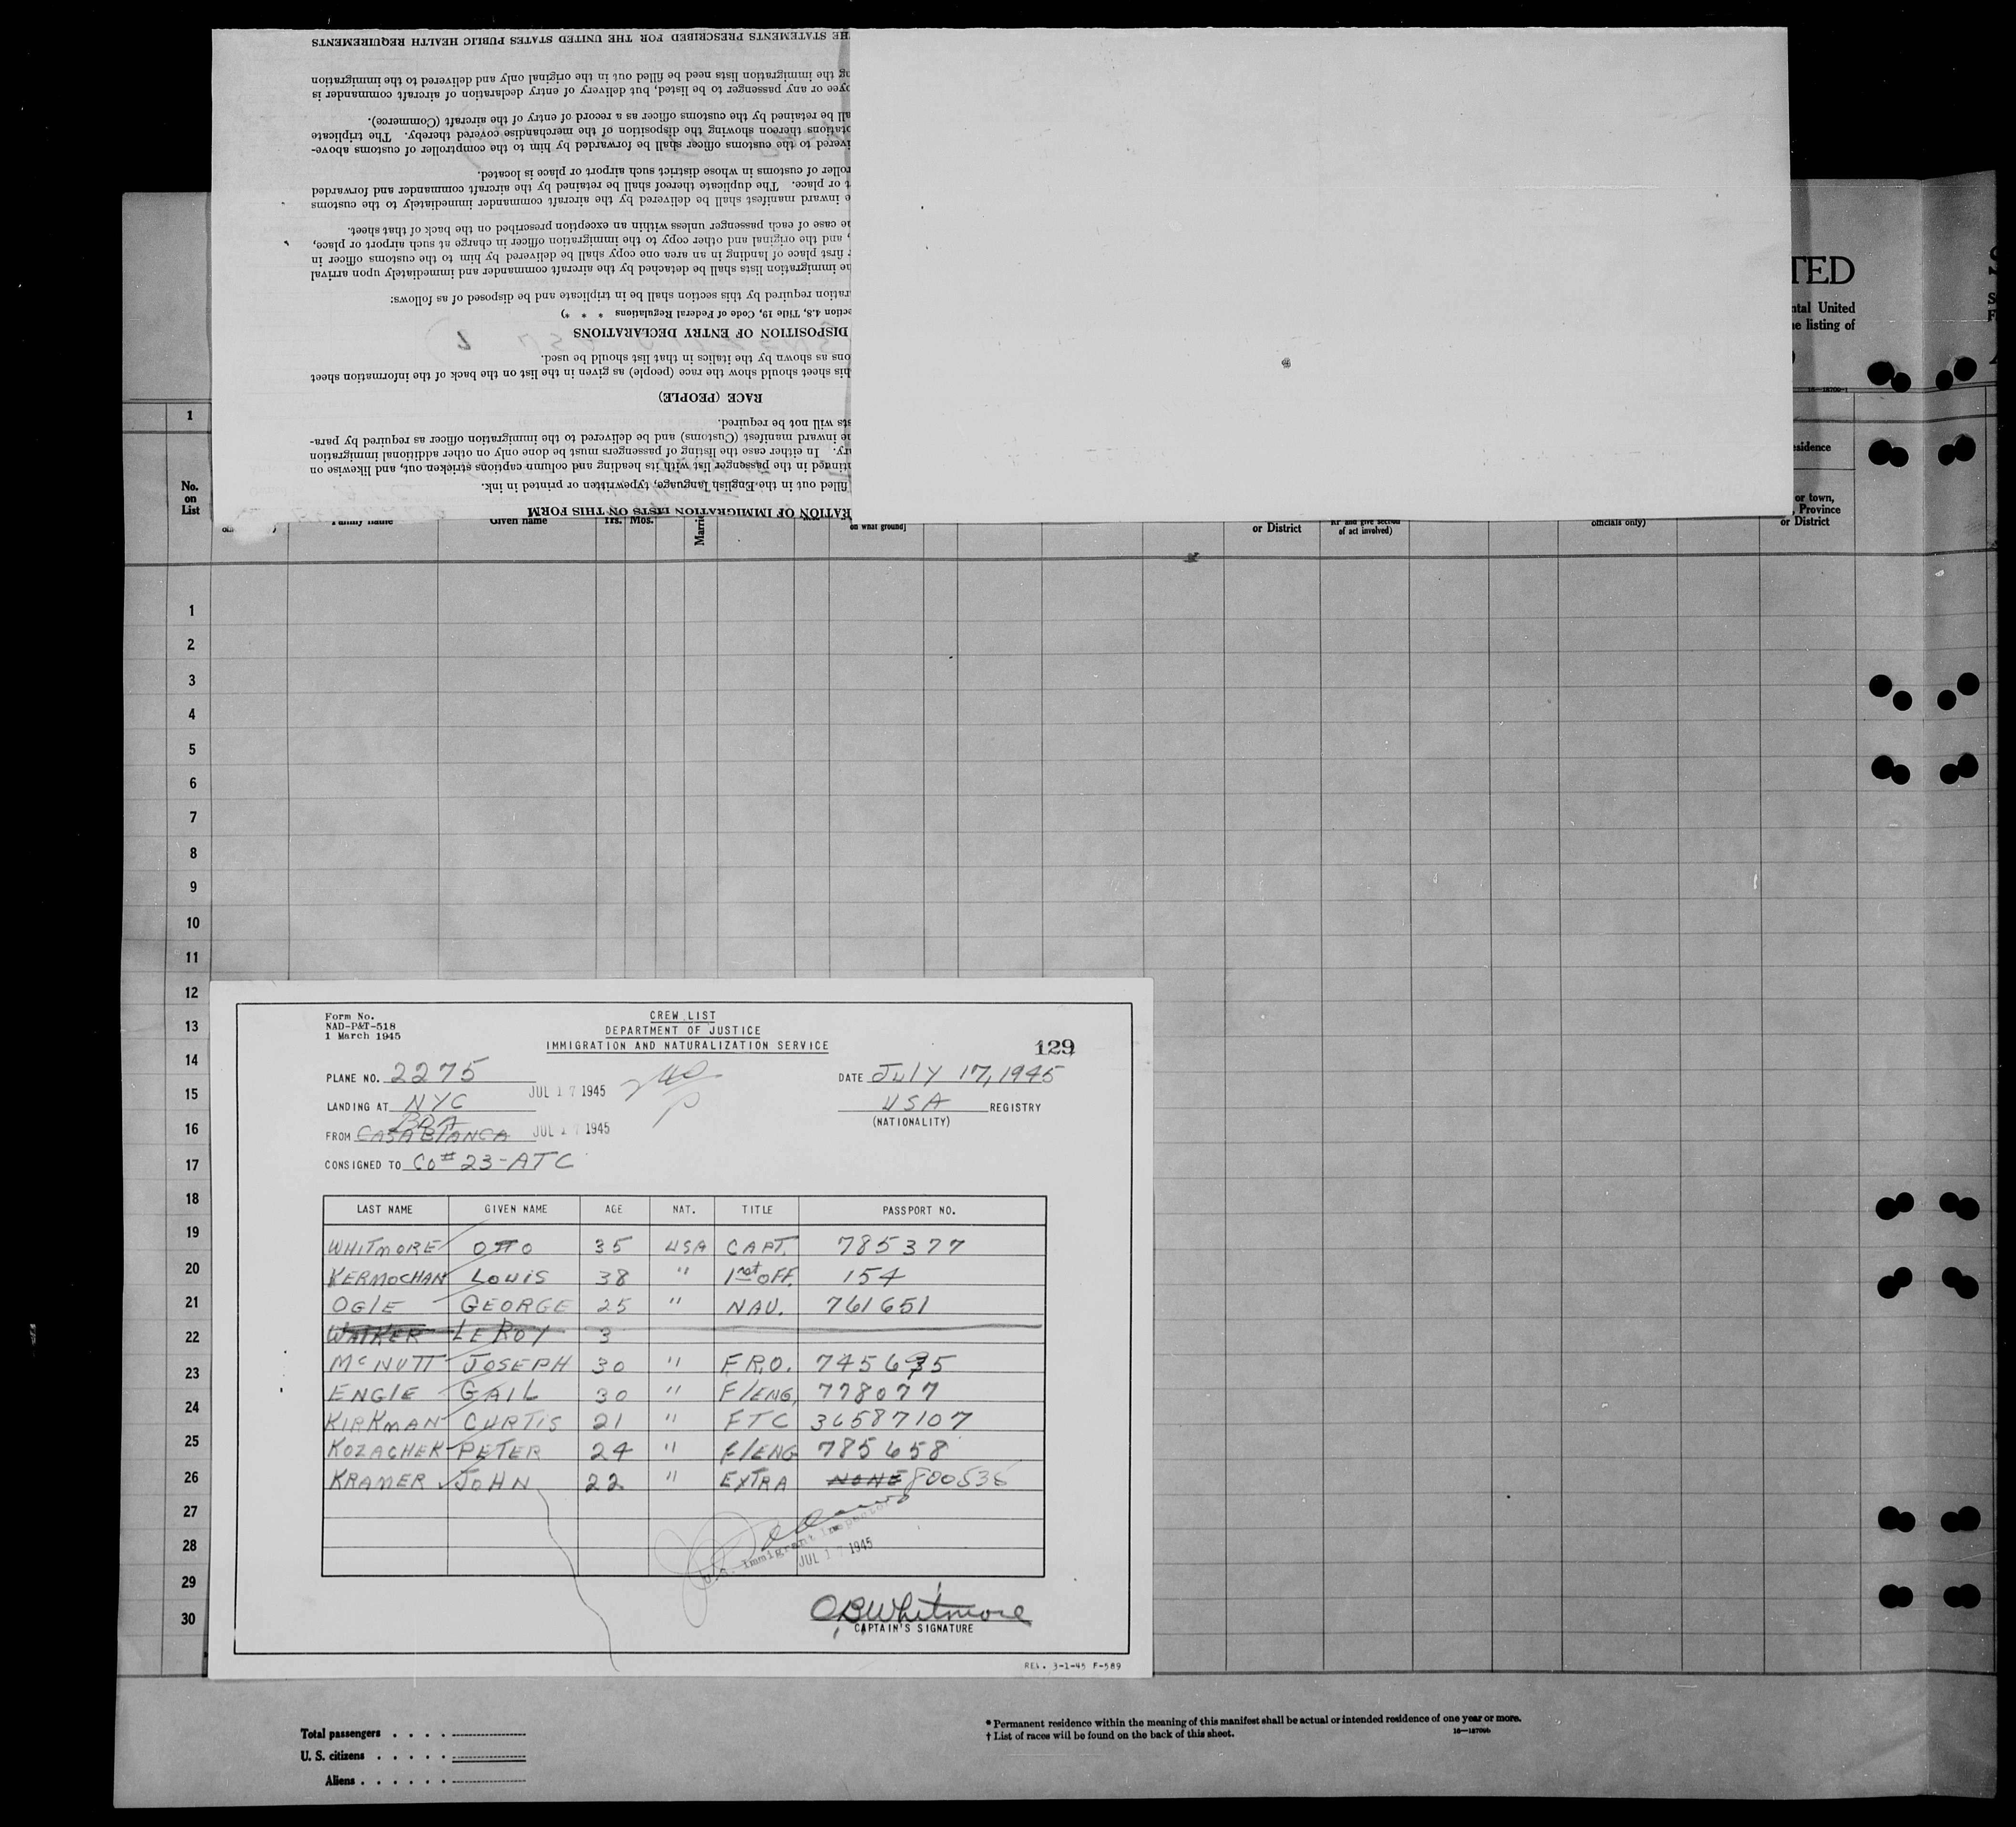 THE STATEMENTS PRESCRIBED FOR THE UNITED STATES PUBLIC HEALTH REQUIREMENTS
the immigration lists need be filled out in the original only and delivered to the immigration
or any passenger to be listed, but delivery of entry declaration of aircraft commander is
be retained by the customs officer as a record of entry of the aircraft (Commerce).
thereon showing the disposition of the merchandise covered thereby. The triplicate
to the customs officer shall be forwarded by him to the comptroller of customs above-
of customs in whose district such airport or place is located.
or place. The duplicate thereof shall be retained by the aircraft commander and forwarded
inward manifest shall be delivered by the aircraft commander immediately to the customs
case of each passenger unless within an exception prescribed on the back of that sheet.
, and the original and other copy to the immigration officer in charge at such airport or place,
first place of landing in an area one copy shall be delivered by him to the customs officer in
immigration lists shall be detached by the aircraft commander and immediately upon arrival
required by this section shall be in triplicate and be disposed of as follows:
4.8, Title 19, Code of Federal Regulations * * *)
DISPOSITION OF ENTRY DECLARATIONS
as shown by the italics in that list should be used.
this sheet should show the race (people) as given in the list on the back of the information sheet
RACE (PEOPLE)
will not be required.
inward manifest (Customs) and be delivered to the immigration officer as required by para-
In either case the listing of passengers must be done only on other additional immigration
in the passenger list with its heading and column captions stricken out, and likewise on
filled out in the English language, typewritten or printed in ink.
OF IMMIGRATION LISTS ON THIS FORM
TED
ntal United
listing of
16—18700-1
1
No.
on
List
Family name
Given name
Yrs. Mos.
on what ground]
or District
and give section
of act involved)
officials only)
esidence
or town,
, Province
or District
1
2
3
4
5
6
7
8
9
10
11
12
13
14
15
16
17
18
19
20
21
22
23
24
25
26
27
28
29
30
Form No.
NAD-P&T-518
1 March 1945
CREW LIST
DEPARTMENT OF JUSTICE
IMMIGRATION AND NATURALIZATION SERVICE
129
PLANE NO. 2275
JUL 17 1945
DATE JULY 17, 1945
LANDING AT NYC
USA REGISTRY
(NATIONALITY)
BDA
FROM CASABLANCA JUL 17 1945
CONSIGNED TO CO# 23-ATC
LAST NAME GIVEN NAME AGE NAT. TITLE PASSPORT NO.
WHITMORE OTTO 35 USA CAPT. 785377
KERMOCHAN LOUIS 38 " 1rst OFF. 154
OGLE GEORGE 25 " NAV. 761651
WALKER LEROY 3
McNUTT JOSEPH 30 " F.R.O. 745635
ENGLE GAIL 30 " F/ENG. 778077
KIRKMAN CURTIS 21 " FTC 36587107
KOZACHEK PETER 24 " F/ENG 785658
KRAMER JOHN 22 " EXTRA NONE 800535
U.S. Immigrant Inspector
JUL 17 1945
OBWhitmore
CAPTAIN'S SIGNATURE
REV. 3-1-45 F-589
Total passengers
U. S. citizens
Aliens
* Permanent residence within the meaning of this manifest shall be actual or intended residence of one year or more.
† List of races will be found on the back of this sheet.
16—18700b